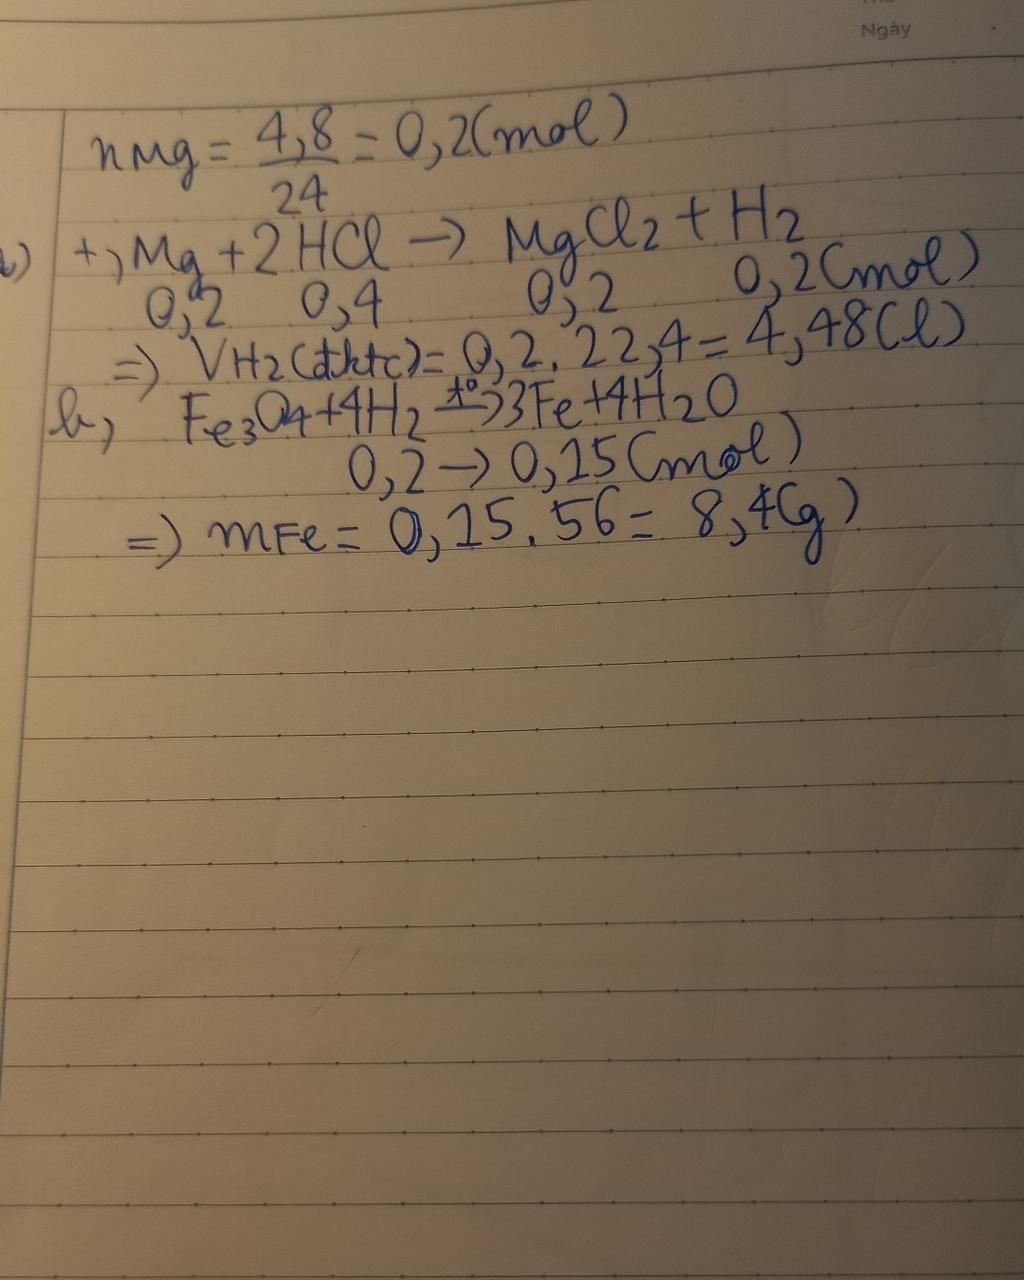 Ngày
nMg = 4,8/24 = 0,2(mol)
a) +, Mg + 2HCl -> MgCl2 + H2
0,2 0,4 0,2 0,2(mol)
=> VH2(đktc) = 0,2.22,4 = 4,48(l)
b, Fe3O4 + 4H2 t°-> 3Fe + 4H2O
0,2 -> 0,15(mol)
=> mFe = 0,15.56 = 8,4(g)